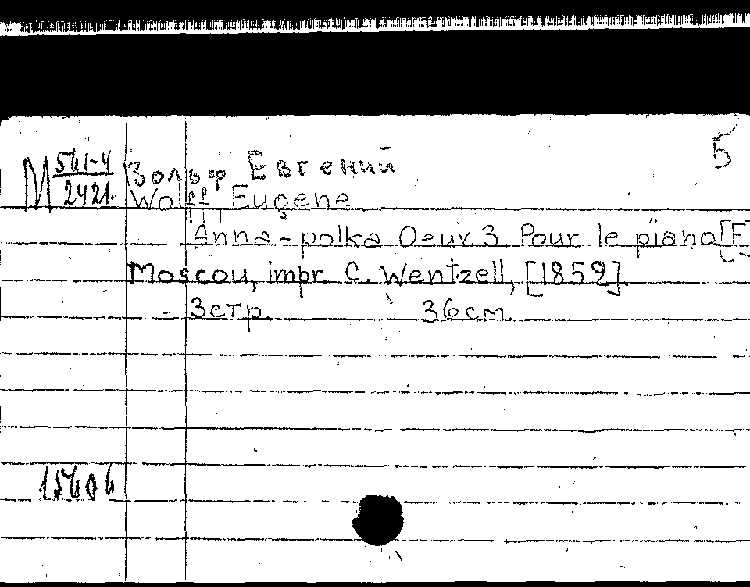 5
М 561-4
2421.
Вольф Евгений
Wolff Eugène
Anna-polka Oeuv 3 Pour le piano [F
Moscou, impr. C. Wentzell, [1859].
- 3 стр. 36 см.